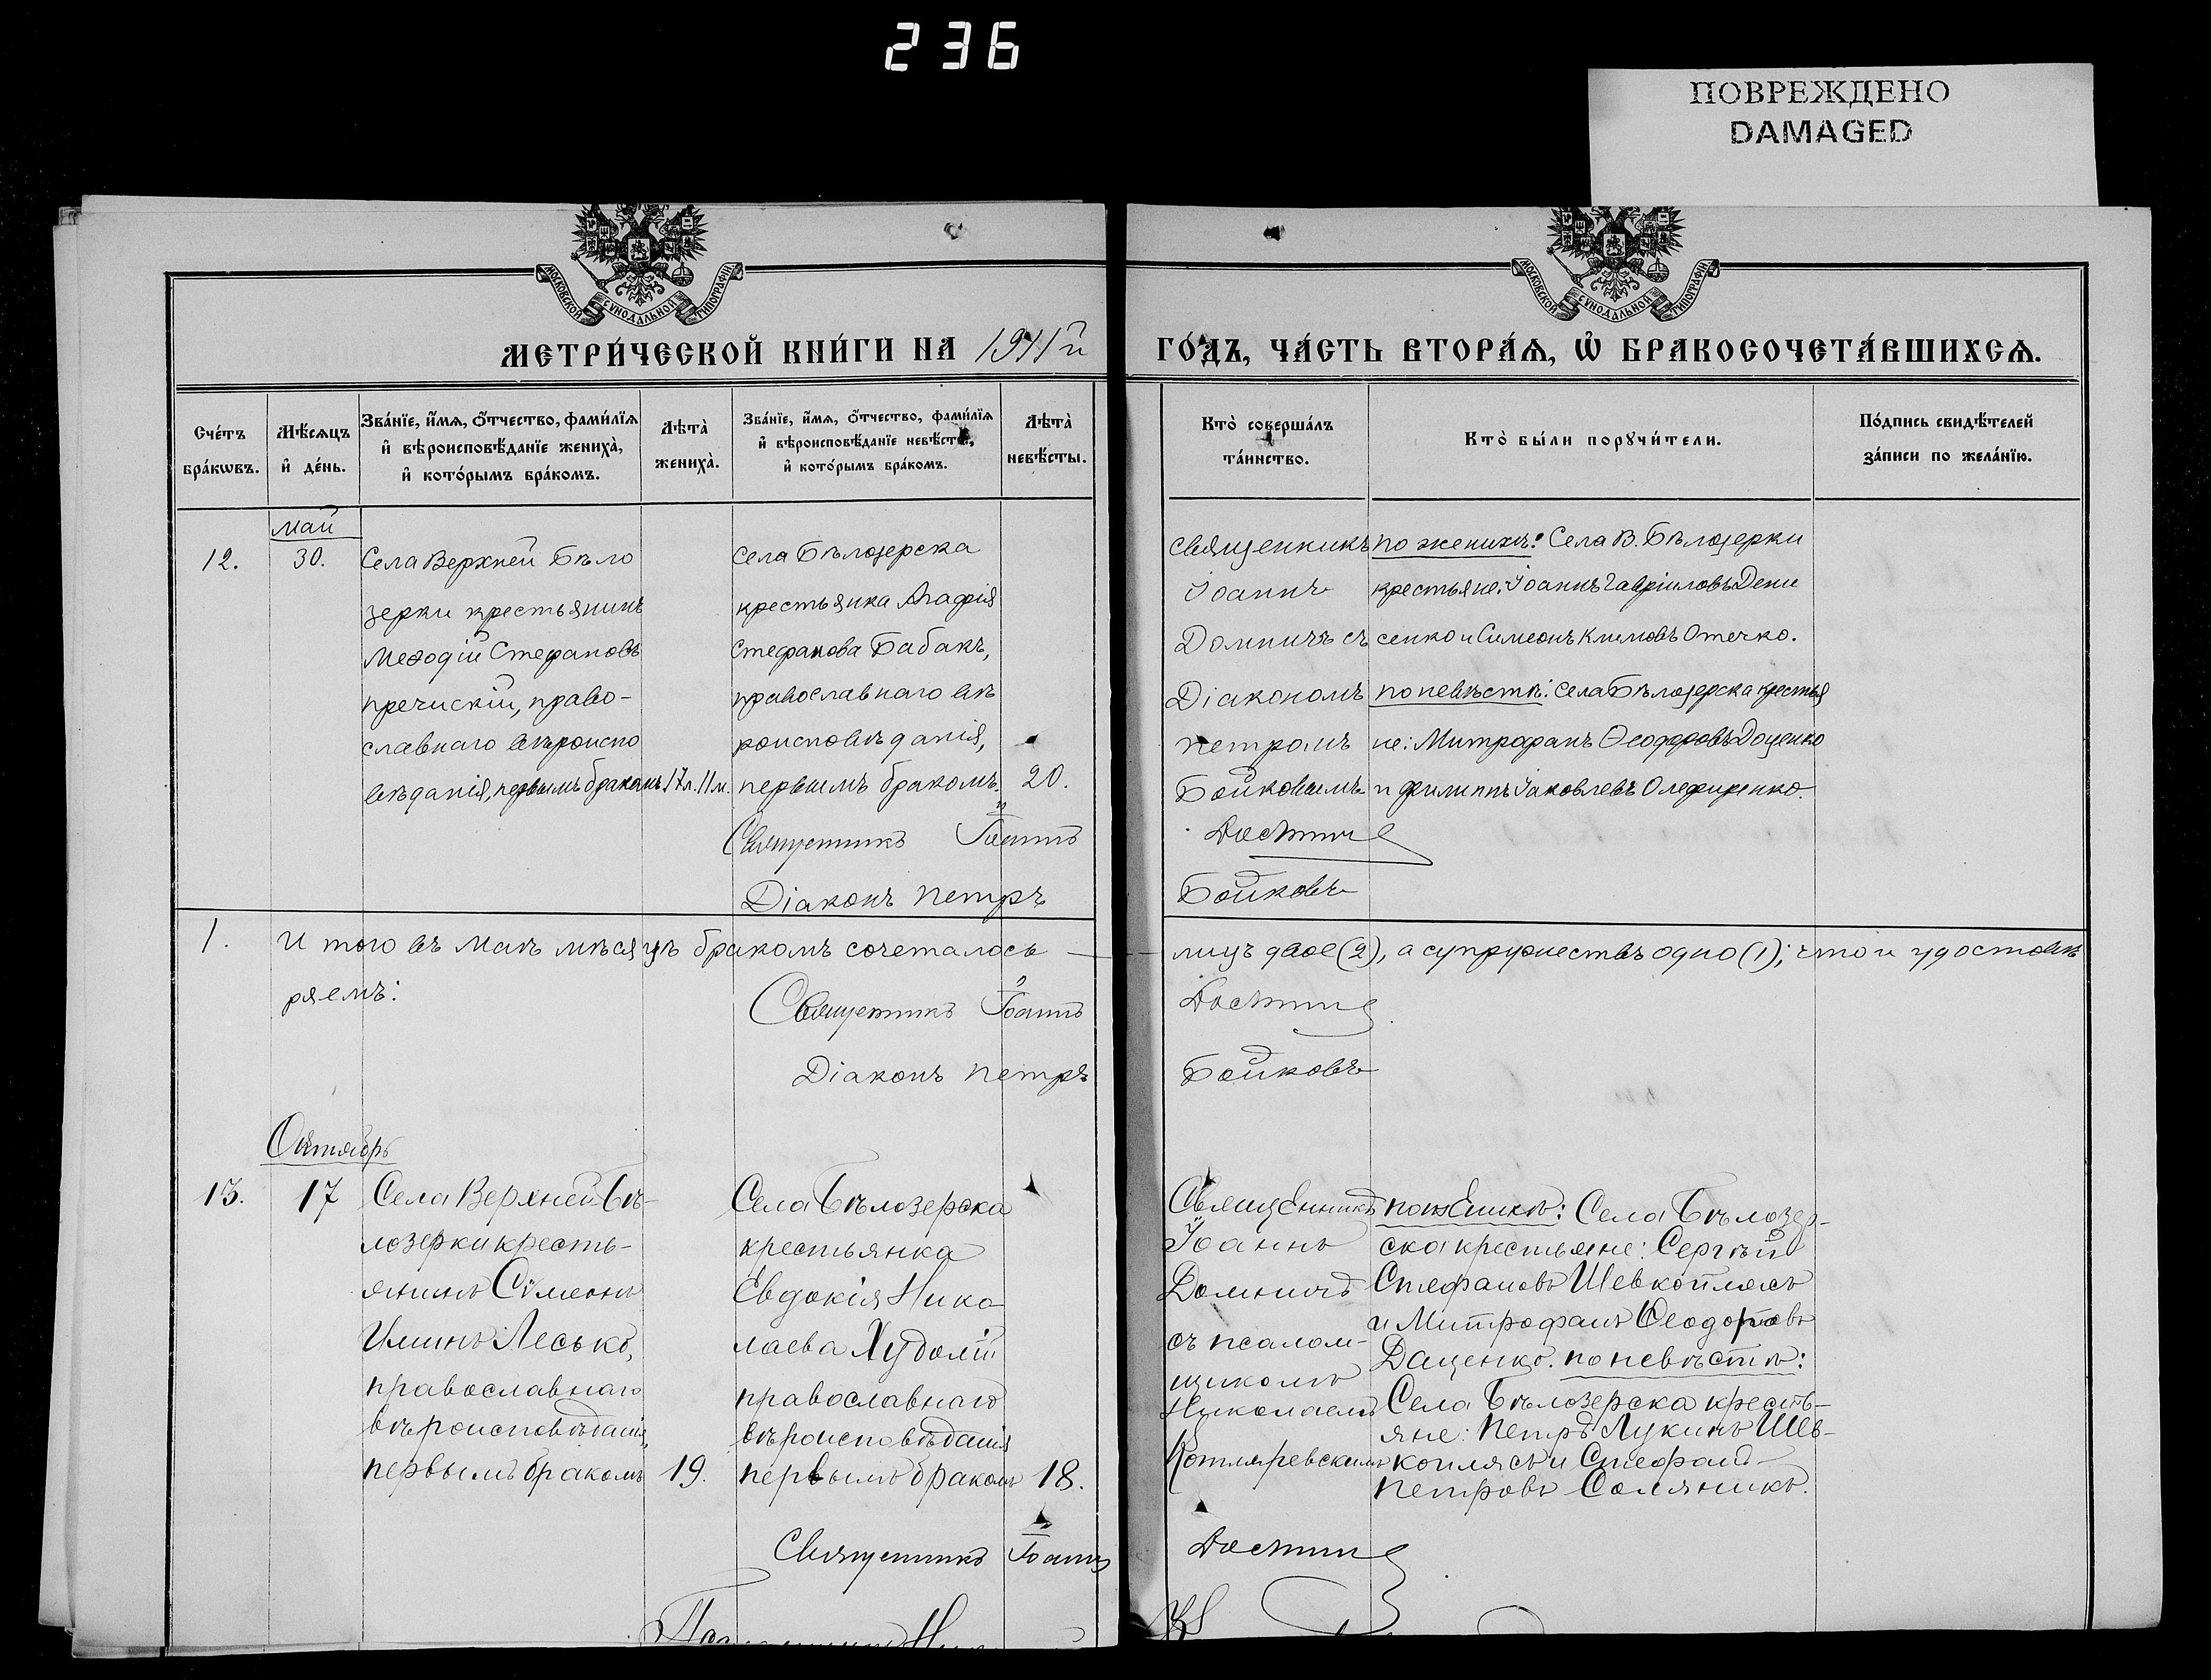 236
ПОВРЕЖДЕНО
DAMAGED
МОСКОВСКОЙ СѴНОДАЛЬНОЙ ТИПОГРАФІИ
МОСКОВСКОЙ СѴНОДАЛЬНОЙ ТИПОГРАФІИ
МЕТРИ́ЧЕСКОЙ КНИ́ГИ НА 1911 й
ГО́ДЪ, ЧА́СТЬ ВТОРА́Ѧ, Ѡ҆ БРАКОСОЧЕТА́ВШИХСѦ.
Сче́тъ
бра́кѡвъ.
Мѣ́сяцъ
и҆ де́нь.
Зва́нїе, и҆́мѧ, ѻ҆́тчество, фами́лїѧ
и҆ вѣроисповѣ́данїе жениха̀,
и҆ кото́рымъ бра́комъ.
Лѣта̀
жениха̀.
Зва́нїе, и҆́мѧ, ѻ҆́тчество, фами́лїѧ
и҆ вѣроисповѣ́данїе невѣ́сты,
и҆ кото́рымъ бра́комъ.
Лѣта̀
невѣ́сты.
Кто̀ соверша́лъ
та́инство.
Кто̀ бы́ли порꙋчи́тели.
По́дпись свидѣ́телей
за́писи по жела́нїю.
май
12.
30.
Села Верхней Бѣло
зерки крестьянинъ
Меѳодій Стефановъ
пречискій, право-
славнаго вѣроиспо
вѣданія, первымъ бракомъ
17л.11м.
села Бѣлозерска
крестьянка Агафія
Стефанова Бабакъ,
православнаго вѣ
роисповѣданія,
первымъ бракомъ.
20.
Священникъ Іоаннъ
Діаконъ Петръ
священникъ
Іоаннъ
Домничъ съ
Діакономъ
петромъ
Бойковымъ
по женихѣ: Села В. Бѣлозерки
крестьяне: Іоаннъ Гавріиловъ Дени
сенко и Симеонъ Климовъ Отечко.
по невѣстѣ: села Бѣлозерска крестья
не: Митрофанъ Ѳеодоровъ Доценко
и филиппъ Іаковлевъ Олефиренко.
Домничъ
Бойковъ
1.
И того въ маѣ мѣсяцѣ бракомъ сочеталось —
— лицъ двое (2), а супружествъ одно (1); что и удостовѣ
ряемъ:
Священникъ Іоаннъ
Домничъ
Діаконъ петръ
Бойковъ
Октябрь
13.
17
Села Верхней Бѣ-
лозерки кресть-
янинъ Сѵмеонъ
Илiинъ Лесько,
православнаго
вѣроисповѣданія,
первымъ бракомъ
19.
Села Бѣлозерска
крестьянка
Евдокія Нико
лаева Худолій
православнаго
вѣроисповѣданія
первымъ бракомъ
18.
Священникъ Іоаннъ
Священникъ
Іоаннъ
Домничъ
съ псалом-
щикомъ
Николаемъ
Котляревскимъ
по женихѣ: Села Бѣлозер-
ска крестьяне: Сергѣй
Стефановъ Шевкоплясъ
и Митрофанъ Ѳеодоровъ
Даценко. по невѣстѣ:
Села Бѣлозерска кресть-
яне: Петръ Лукинъ Шев-
коплясъ и Стефанъ
Петровъ Соляникъ.
Домничъ